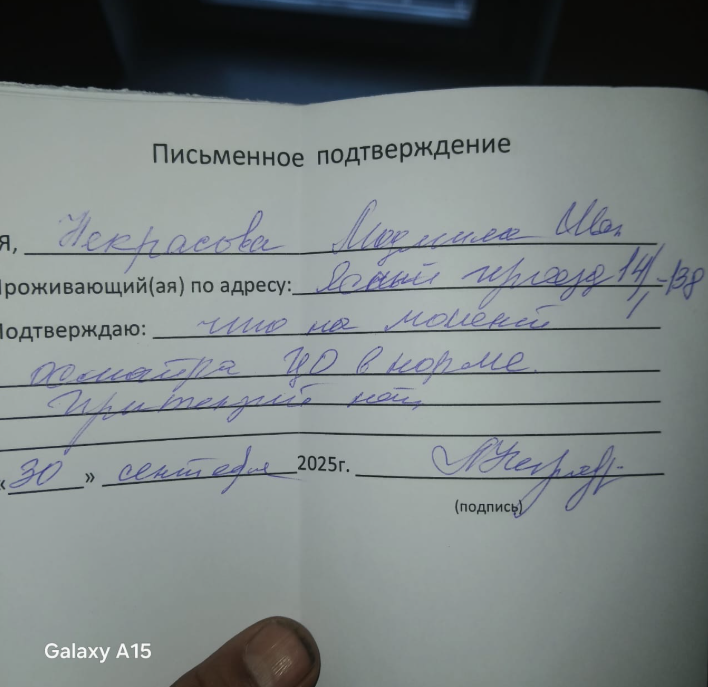 Письменное подтверждение
Я, Некрасова Людмила Ива.
Проживающий(ая) по адресу: Ясный проезд 14/1-138
Подтверждаю: что на момент
осмотра ЦО в норме.
Притензий нет,
«30» сентября 2025г.
(подпись)
Galaxy A15